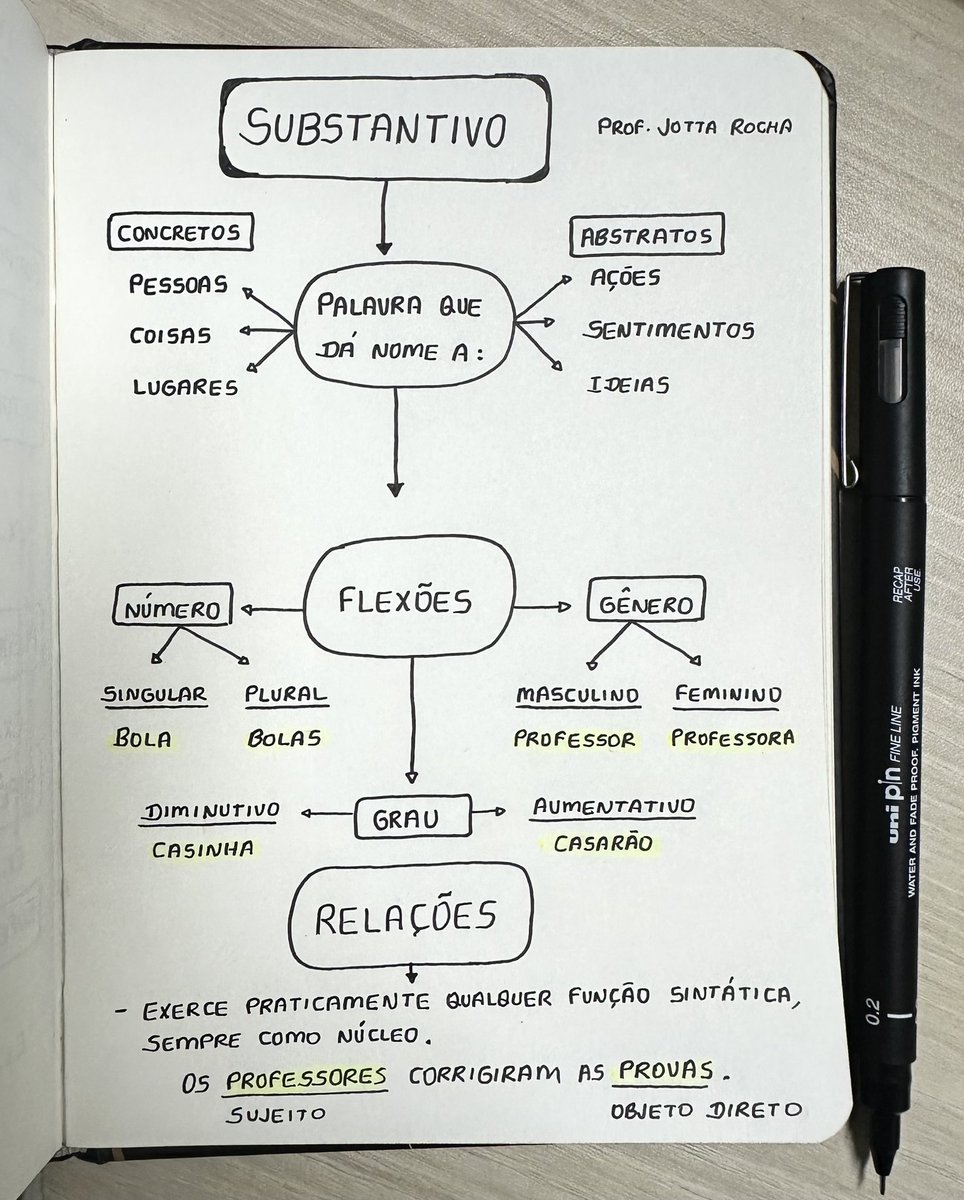 SUBSTANTIVO
PROF. JOTTA ROCHA
CONCRETOS
PESSOAS
COISAS
LUGARES
PALAVRA QUE
DÁ NOME A:
ABSTRATOS
AÇÕES
SENTIMENTOS
IDEIAS
FLEXÕES
NÚMERO
SINGULAR
BOLA
PLURAL
BOLAS
GÊNERO
MASCULINO
PROFESSOR
FEMININO
PROFESSORA
GRAU
DIMINUTIVO
CASINHA
AUMENTATIVO
CASARÃO
RELAÇÕES
- EXERCE PRATICAMENTE QUALQUER FUNÇÃO SINTÁTICA,
SEMPRE COMO NÚCLEO.
OS PROFESSORES CORRIGIRAM AS PROVAS.
SUJEITO OBJETO DIRETO
RECAP
AFTER
USE.
uni pin FINE LINE
WATER AND FADE PROOF, PIGMENT INK
0.2